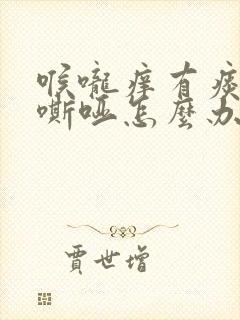 喉嚨痒有痰
嘶哑怎麼办
賈世增